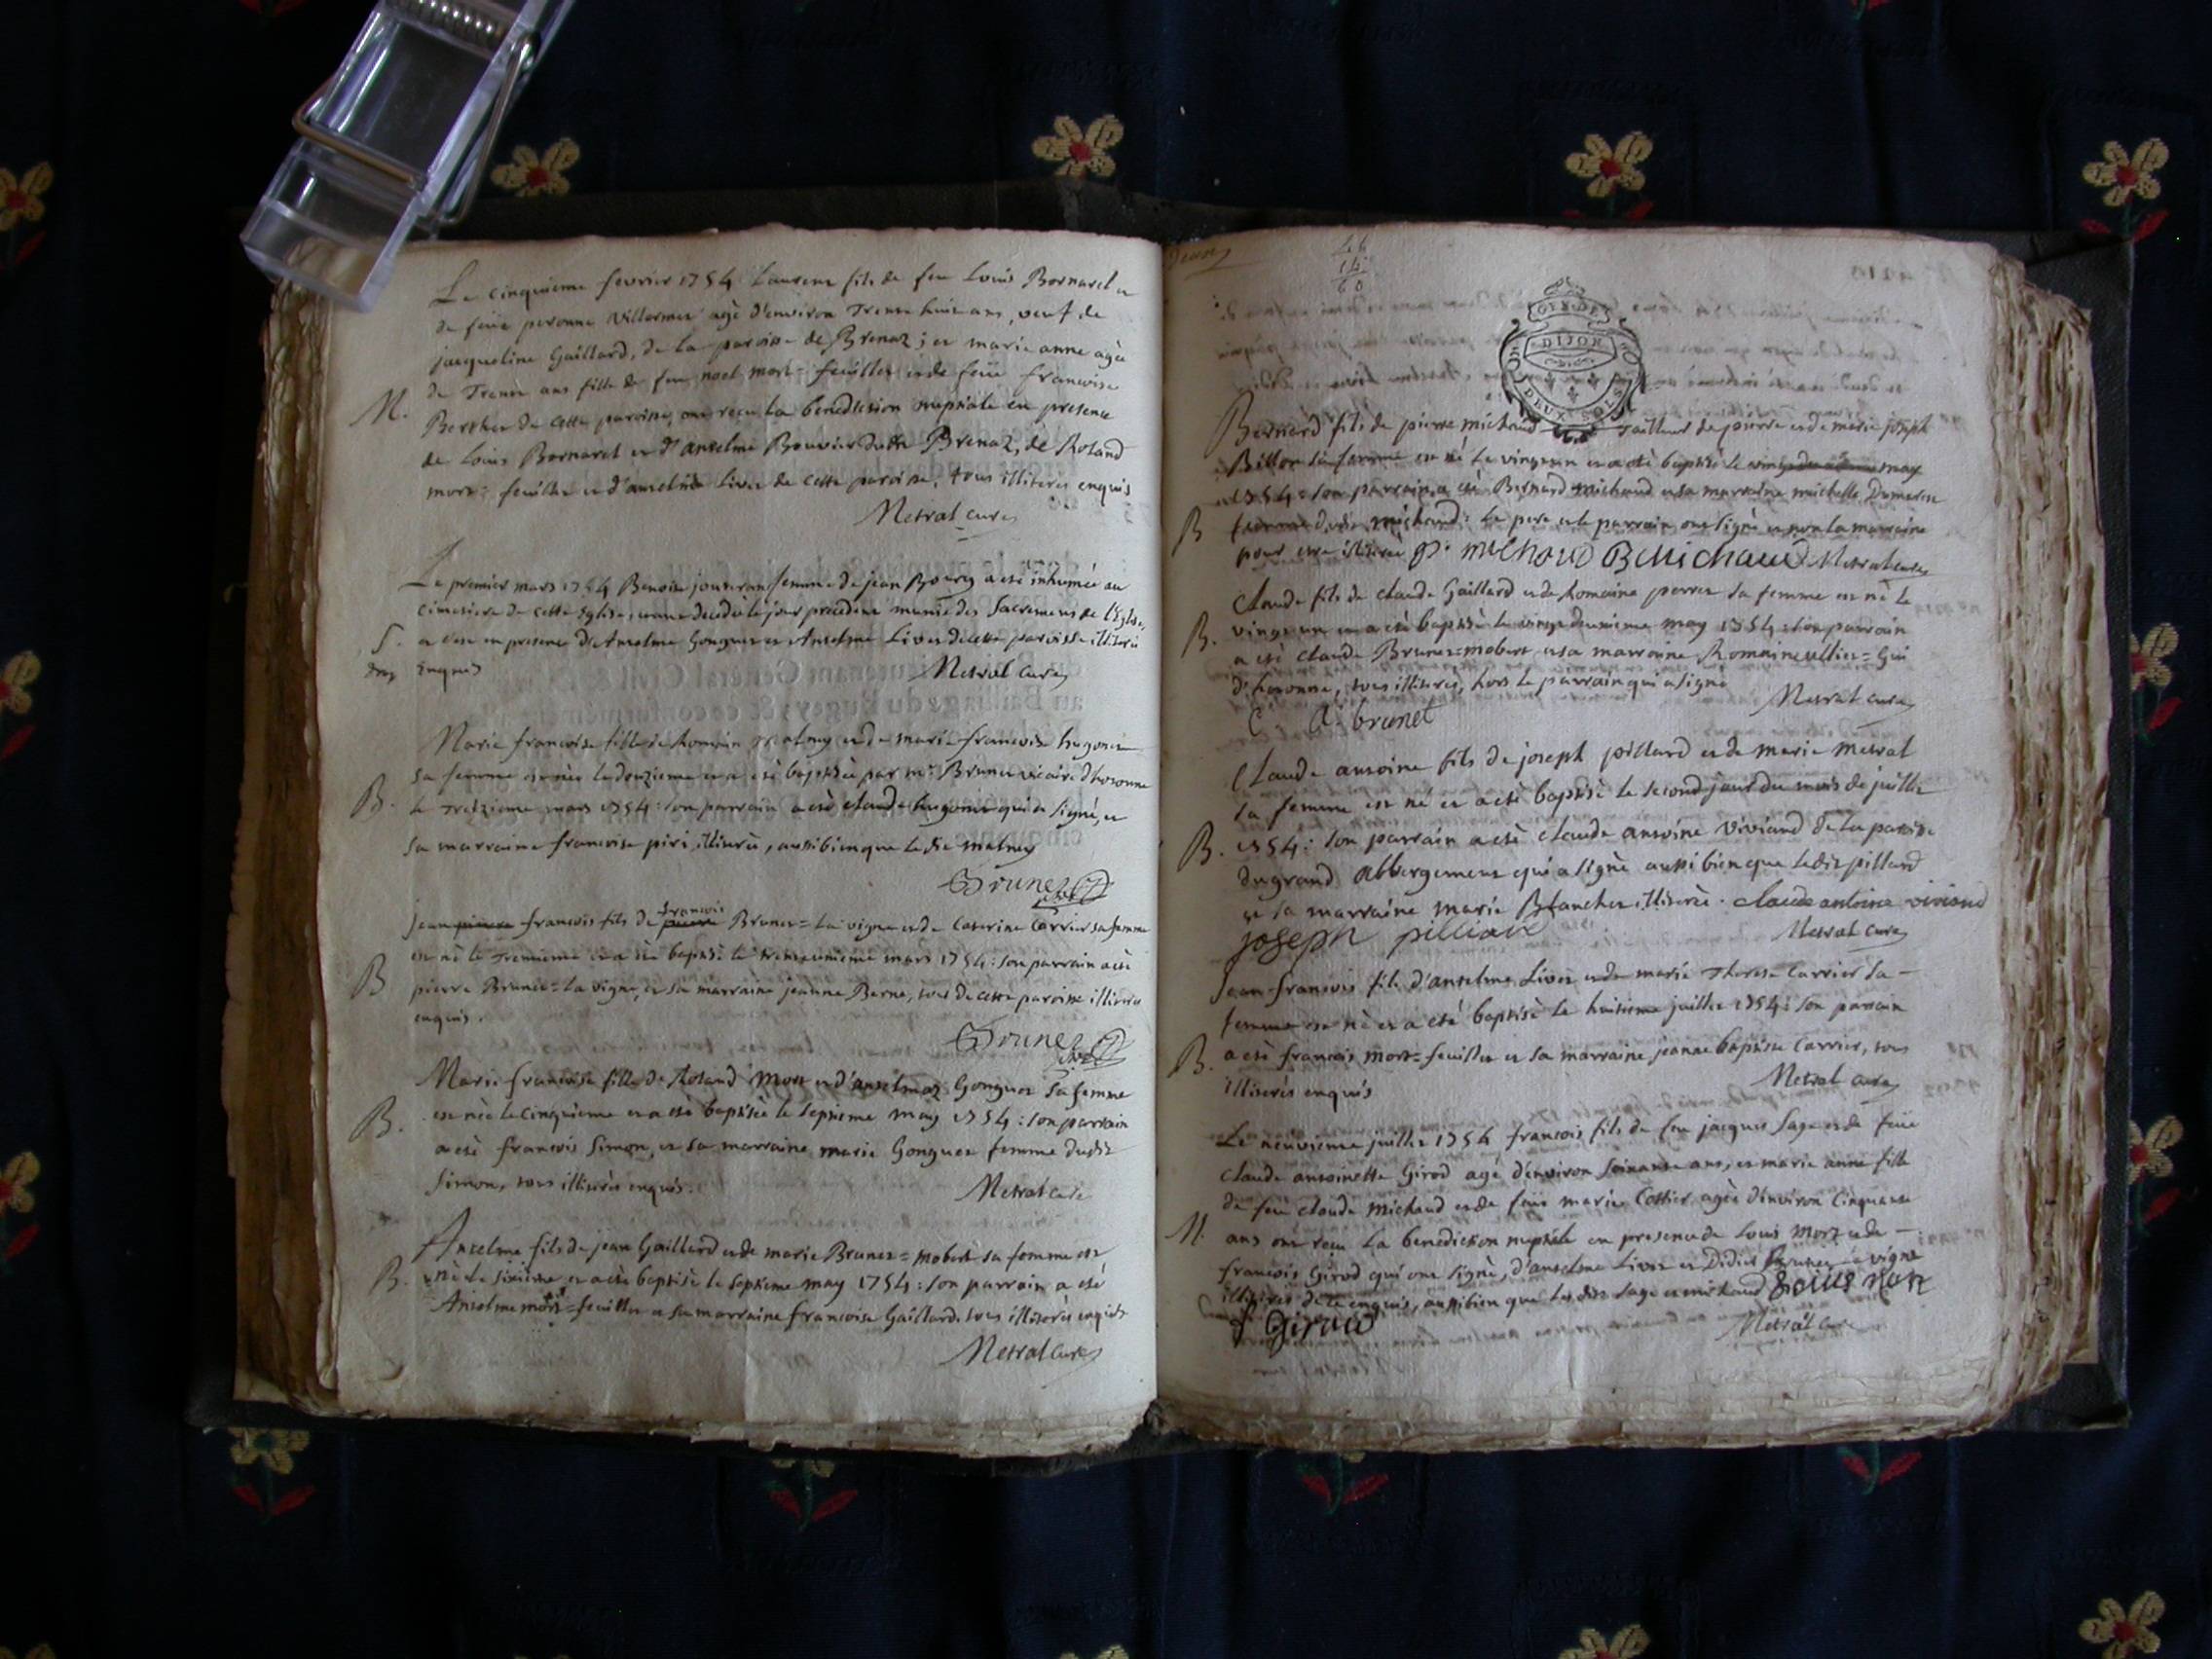 Le cinquieme fevrier 1754 Laurent fils de feu Louis Bornarel et
de feüe peronne Villermet agé d'environ Trente huit ans, veuf de
jacqueline Gaillard, de la paroisse de Brenaz; et marie anne agée
de Trente ans fille de feu noel mort=feuillet et de feüe francoise
M. Berthet de cette paroisse, ont recu la benediction nuptiale en presence
de Louis Bornarel et d'anselme Bouvier dudit Brenaz, de Roland
mort=feuillet et d'anselme Livet de cette paroisse, tous illiterés enquis
Metral curé
Le premier mars 1754 Benoite femme de jean Bourg a esté inhumée au
cimetiere de cette Eglise, etant decedée le jour precedent munie des Sacremens de l'Eglise,
S. a esté en presence d'Anselme Gonguet et Anselme Livet de cette paroisse illiterés
enquis
Metral curé
Marie francoise fille de Romain et de marie francoise hugonet
sa femme est née le douzieme et a esté baptisée par mr. Brunet vicaire d'hotonne
B. le Treizieme mars 1754: son parrain a esté claude hugonet qui a signé, et
sa marraine francoise piri illiterée, aussi bien que le dit
Brunet vic
jean pierre francois fils de pierre francois Brunet=la vigne et de Caterine Carrier sa femme
est né le Trentieme et a été baptisé le trente unieme mars 1754: son parrain a esté
B pierre Brunet=la vigne, et sa marraine jeanne Berne, tous de cette paroisse illiterés
enquis.
Brunet vic
Marie francoise fille de Roland Mort et d'anselmaz Gonguet sa femme
est née le cinquieme et a esté baptisée le septieme may 1754: son parrain
B. a esté francois Simon, et sa marraine marie Gonguet femme dudit
Simon, tous illiterés enquis.
Metral curé
Anselme fils de jean Gaillard et de marie Brunet=mobert sa femme est
B. né le sixieme et a esté baptisé le septieme may 1754: son parrain a esté
Anselme mort=feuillet et sa marraine francoise Gaillard, tous illiterés enquis
Metral curé
46
14
60
GEN DE
DIJON
DEUX SOLS
Bernard fils de pierre michaud Tailleur de pierre et de marie joseph
Billon sa femme est né le vingt un et a esté baptisé le may
1754: son parrain a esté Bernard michaud et sa marraine michelle Dumarest
B femme dudit michaud: le pere et le parrain ont signé et non la marraine
pour etre illiterée P. michaud B michaud Metral curé
Claude fils de claude Gaillard et de Romaine perret sa femme est né le
B. vingt un et a esté baptisé le vingt deuxieme may 1754: son parrain
a esté claude Brunet=mobert et sa marraine Romaine =Gui
d'hotonne, tous illiterés, hors le parrain qui a signé
Metral curé
C A brunet
Claude antoine fils de joseph pillard et de marie metral
sa femme est né et a esté baptisé le second jour du mois de juillet
B. 1754: son parrain a esté claude antoine Viviand de la paroisse
du grand Abbergement qui a signé aussi bien que le dit pillard
et sa marraine marie Blanchet illiterée. claude antoine viviand
joseph pilliard Metral curé
Jean francois fils d'anselme Livet et de marie Therese Carrier sa
femme est né et a esté baptisé le huitieme juillet 1754: son parrain
B. a esté francois mort=feuillet et sa marraine jeanne baptiste Carrier, tous
illiterés enquis
Metral curé
Le neuvieme juillet 1754 francois fils de feu jacques Sage et de feüe
claude antoinette Girod agé d'environ soixante ans, et marie anne fille
de feu claude michaud et de feüe marie Cottier agée d'environ Cinquante
M. ans ont recu la benediction nuptiale en presence de Louis Mort et de
francois Girod qui ont signé, d'anselme Livet et Didier Brunet=la vigne
illiterés de ce enquis, aussi bien que lesdits Sage et michaud Louis Mort
f Giraud Metral curé